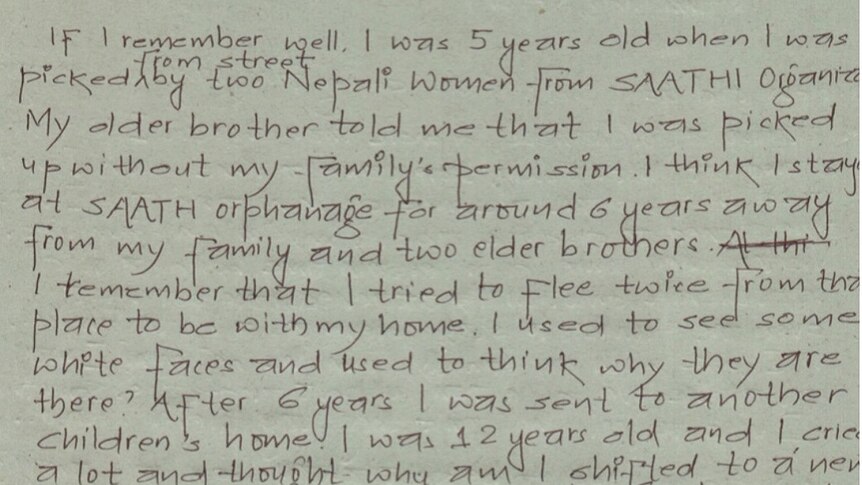 If I remember well, I was 5 years old when I was
from street
picked by two Nepali Women from SAATHI Organiza
My older brother told me that I was picked
up without my family's permission. I think I stay
at SAATH orphanage for around 6 years away
from my family and two elder brothers. At thi
I remember that I tried to flee twice from tha
place to be with my home. I used to see some
white faces and used to think why they are
there? After 6 years I was sent to another
children's home. I was 12 years old and I cried
a lot and thought why am I shifted to a new